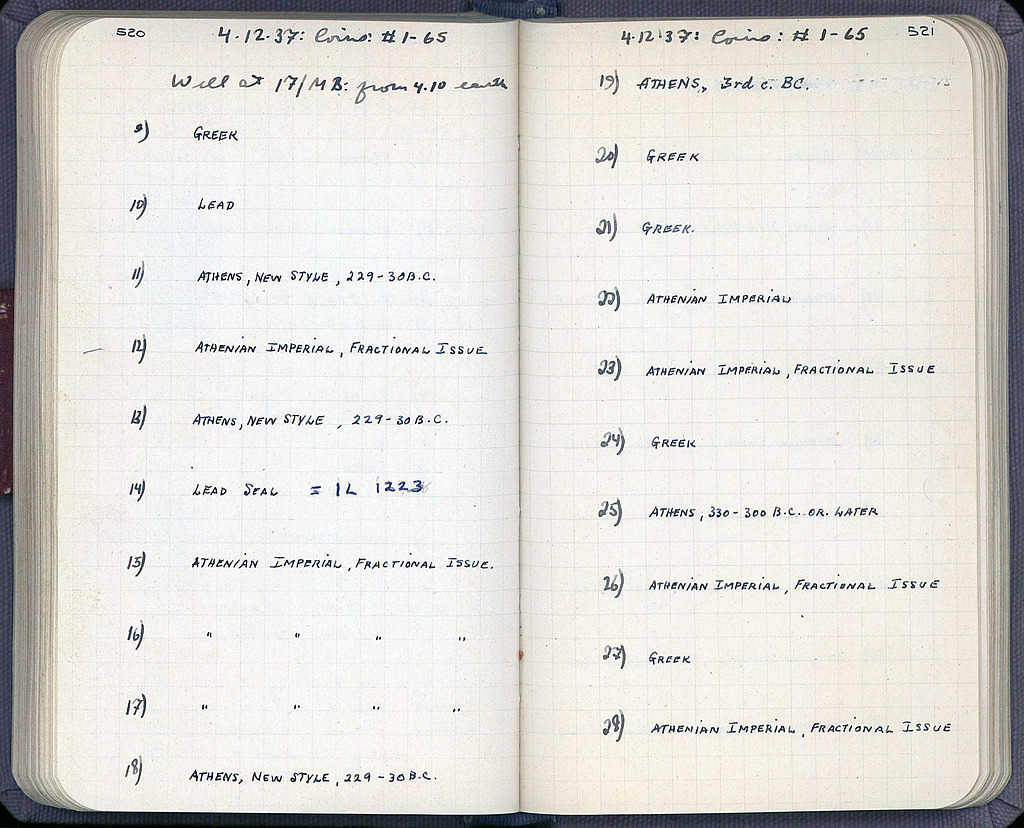 520
4.12.37: Coins: #1-65
Well at 17/ΜΒ: from 4.10 earth
9) GREEK
10) LEAD
11) ATHENS, NEW STYLE, 229-30 B.C.
12) ATHENIAN IMPERIAL, FRACTIONAL ISSUE
13) ATHENS, NEW STYLE, 229-30 B.C.
14) LEAD SEAL = IL 1223
15) ATHENIAN IMPERIAL, FRACTIONAL ISSUE.
16) " " " "
17) " " " "
18) ATHENS, NEW STYLE, 229-30 B.C.
4.12.37: Coins: #1-65
521
19) ATHENS, 3rd c. BC.
20) GREEK
21) GREEK.
22) ATHENIAN IMPERIAL
23) ATHENIAN IMPERIAL, FRACTIONAL ISSUE
24) GREEK
25) ATHENS, 330-300 B.C. OR LATER
26) ATHENIAN IMPERIAL, FRACTIONAL ISSUE
27) GREEK
28) ATHENIAN IMPERIAL, FRACTIONAL ISSUE